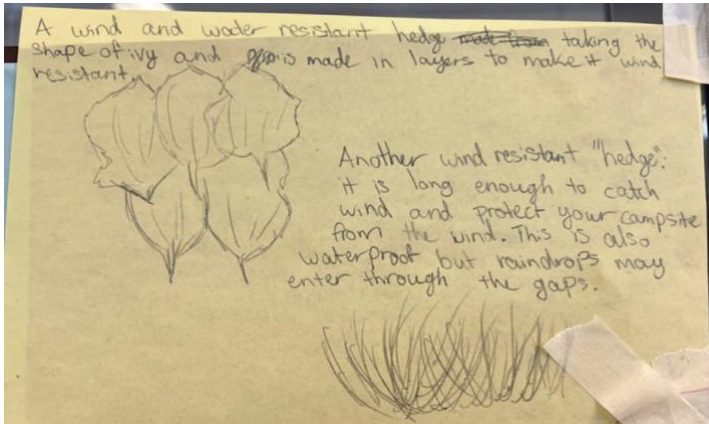 A wind and water resistant hedge made from taking the
shape of ivy and is made in layers to make it wind
resistant.
Another wind resistant "hedge":
it is long enough to catch
wind and protect your campsite
from the wind. This is also
waterproof but raindrops may
enter through the gaps.